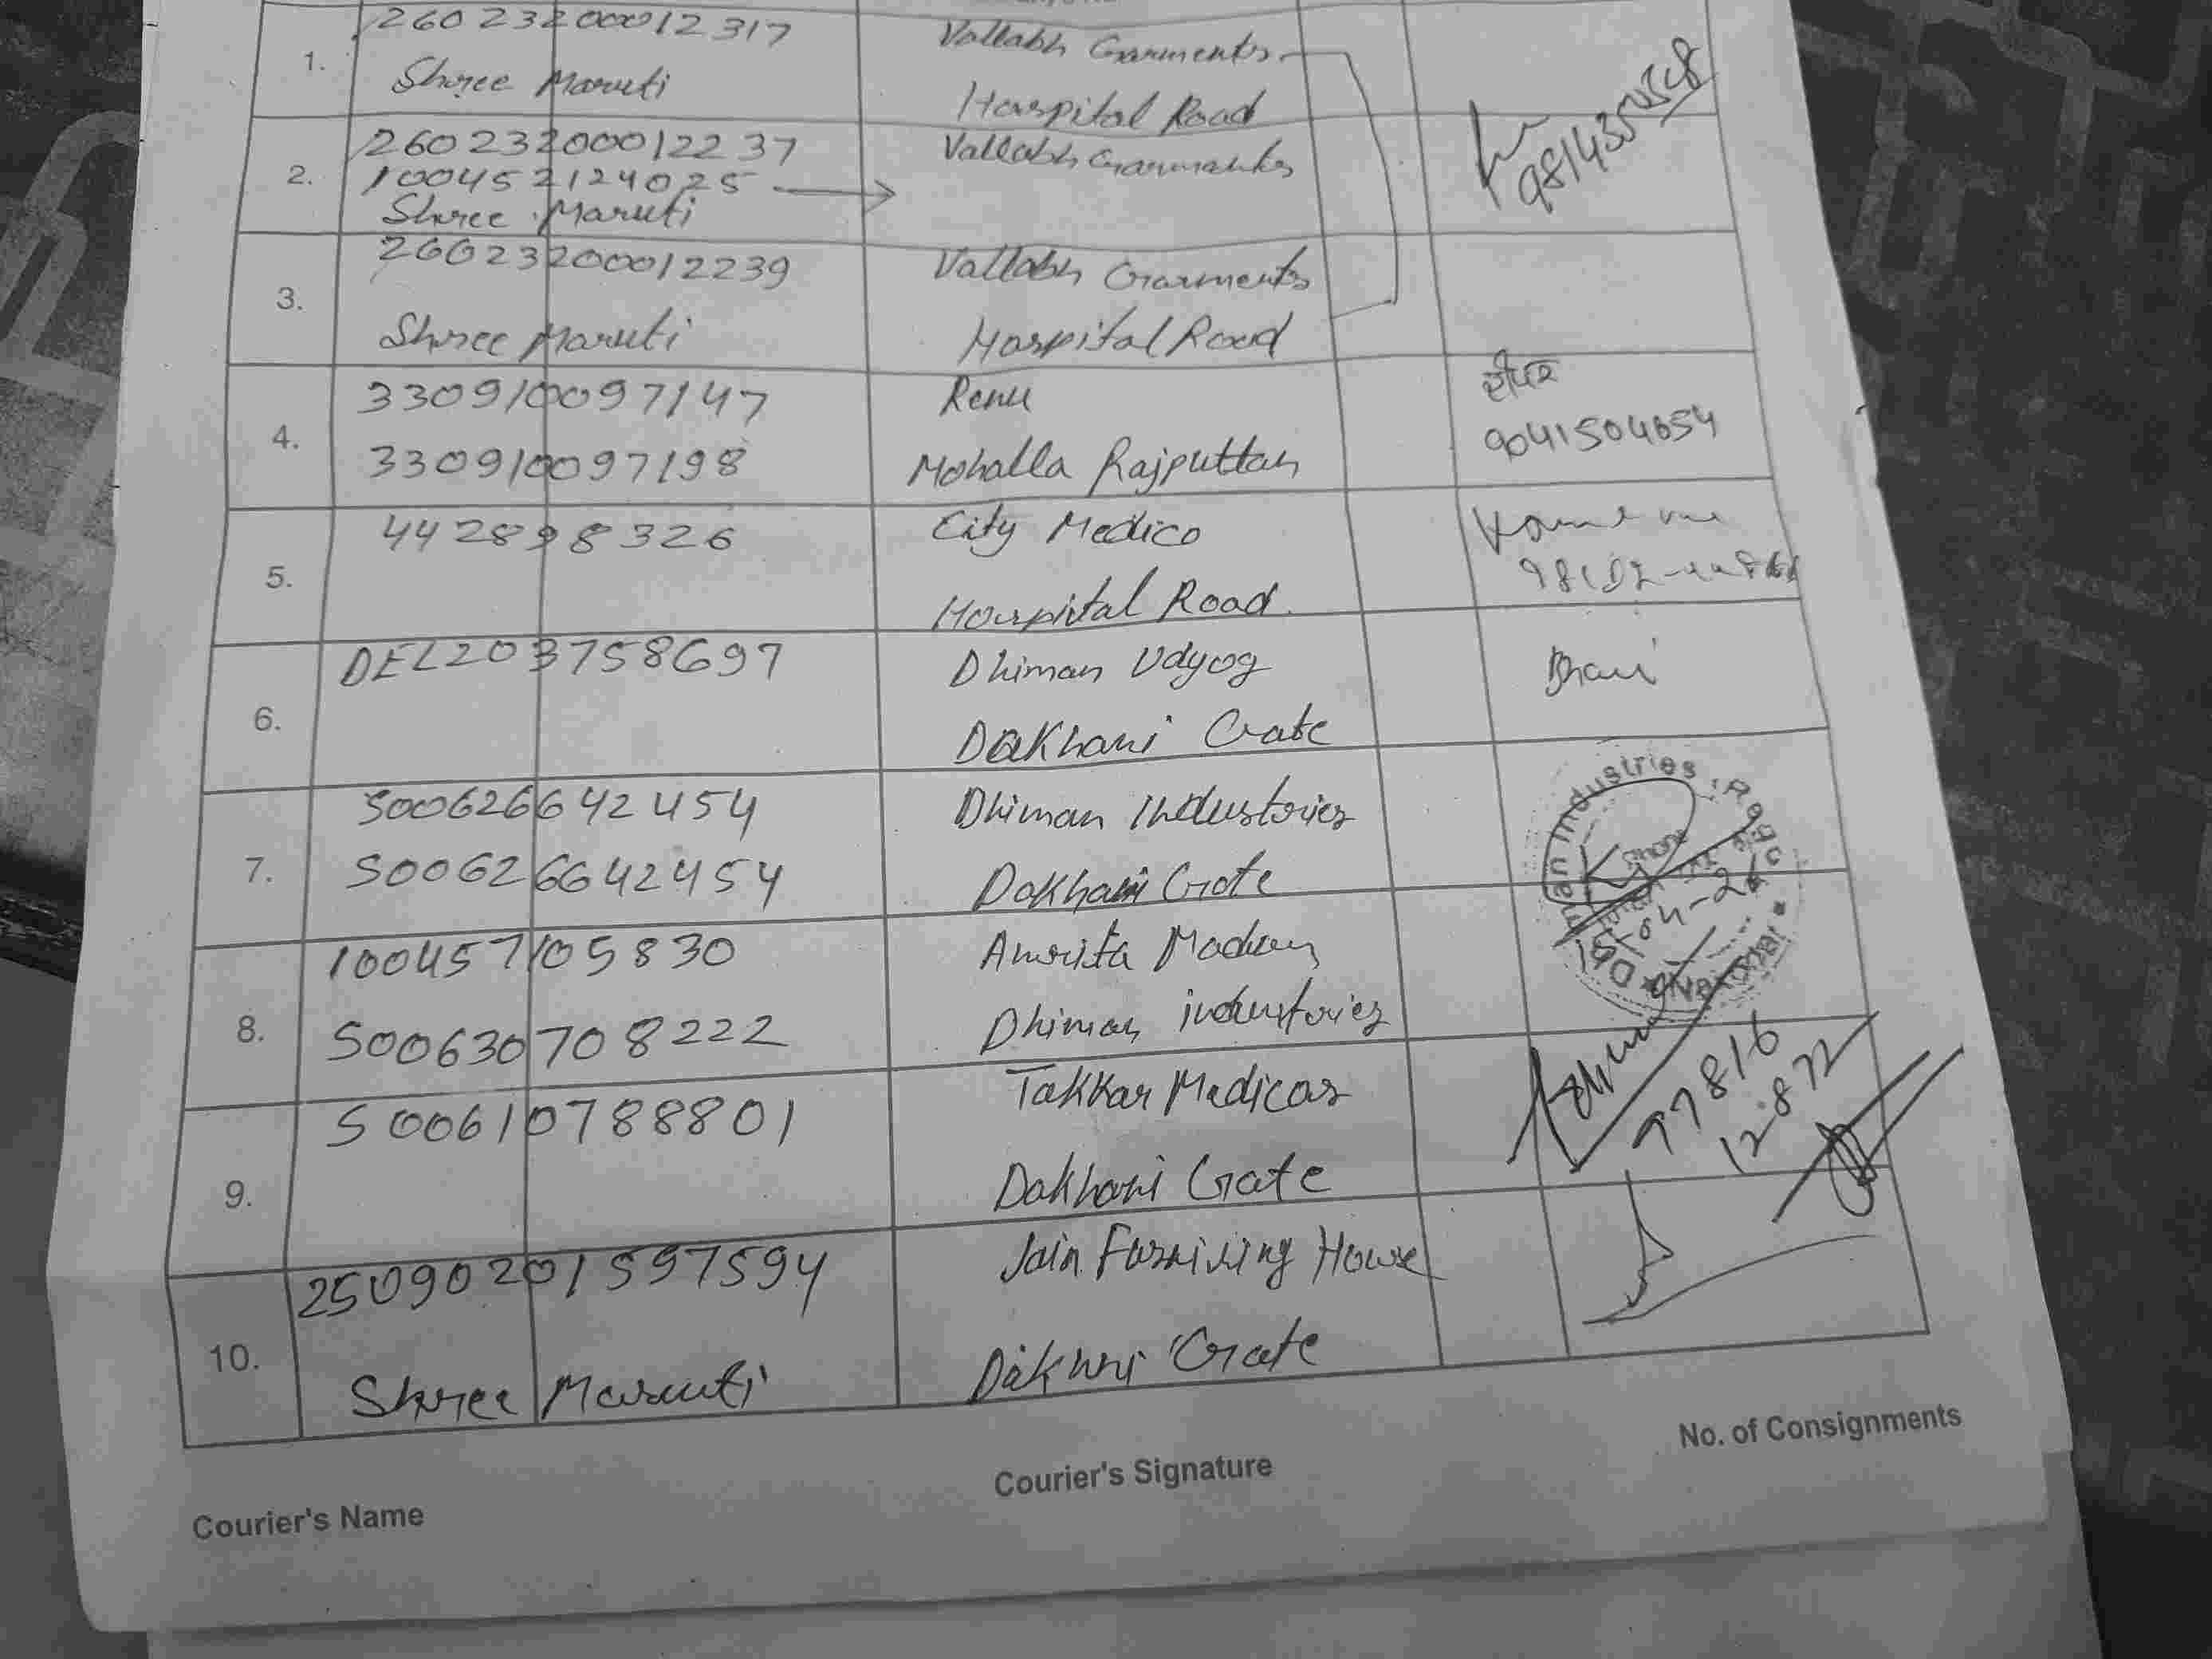 1.
26023200012317
Shree Maruti
Vallabh Garments
Hospital Road
2.
26023200012237
100452124025
Shree Maruti
Vallabh Garments
3.
26023200012239
Shree Maruti
Vallabh Garments
Hospital Road
4.
330910097147
330910097198
Renu
Mohalla Rajputtan
9041504654
5.
442898326
City Medico
Hospital Road
6.
DEL203758697
Dhiman Udyog
Dakhani Gate
7.
S00626642454
S00626642454
Dhiman Industories
Dakhani Gate
Industries, Regd.
Nakodar
15-04-26
8.
100457105830
S00630708222
Amrita
Dhiman industories
9.
S00610788801
Takkar Medicos
Dakhani Gate
97816
12872
10.
25090201597594
Shree Maruti
Jain House
Gate
Courier's Name
Courier's Signature
No. of Consignments